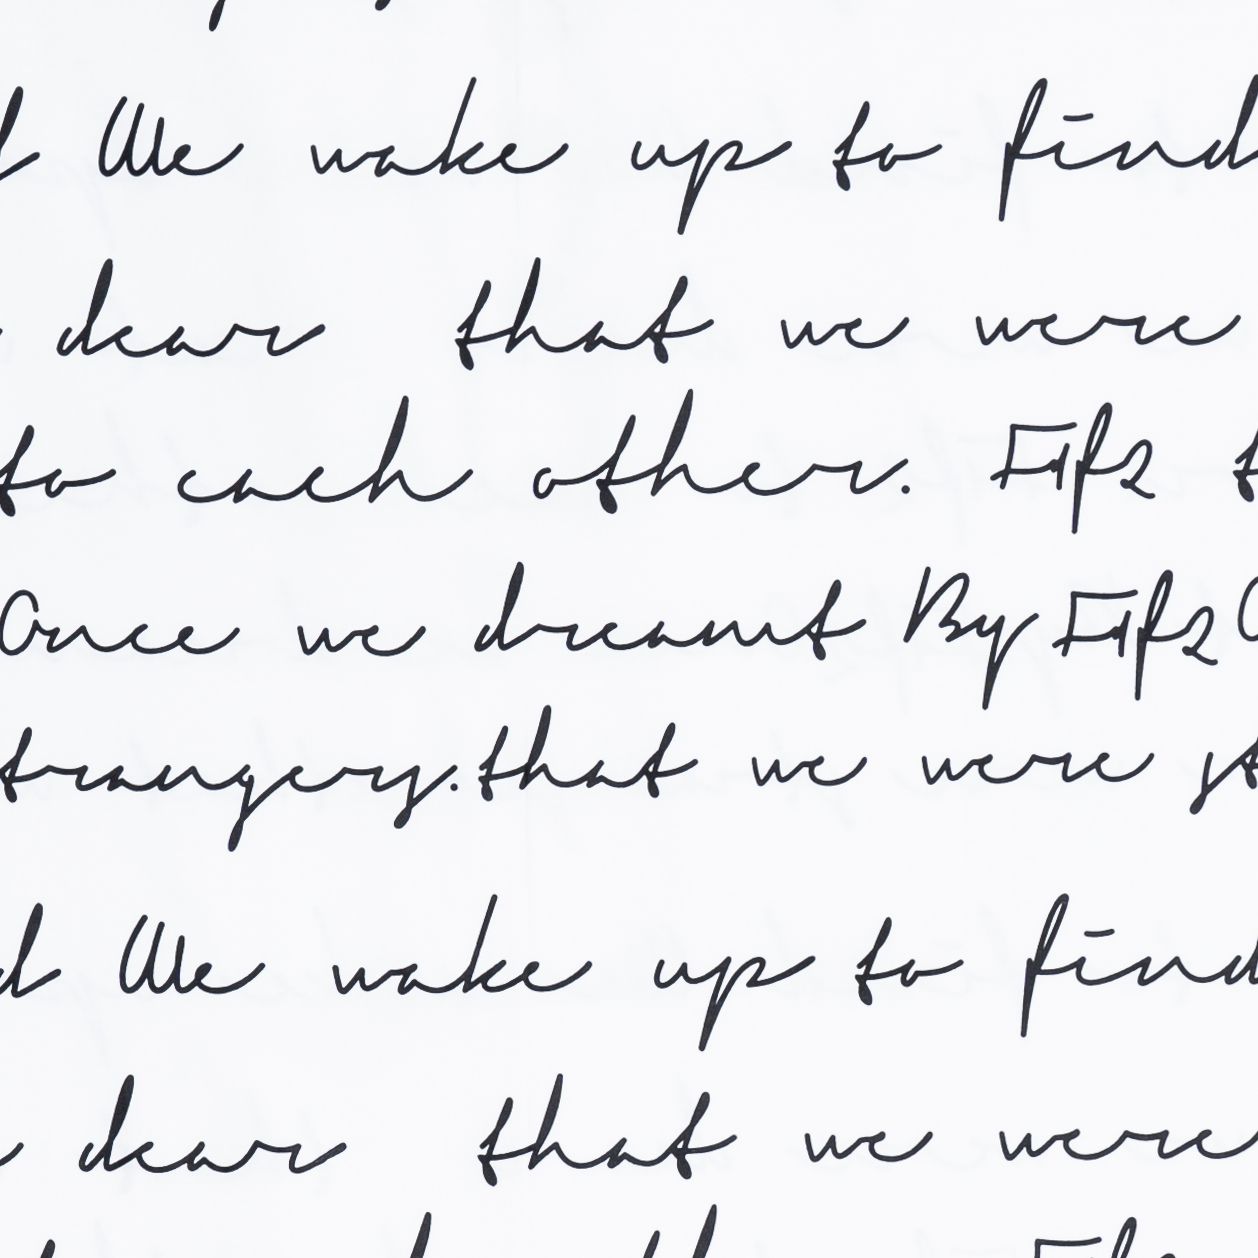 We wake up to find
dear that we were
to each other.
Once we dreamt By
that we were
We wake up to find
dear that we were